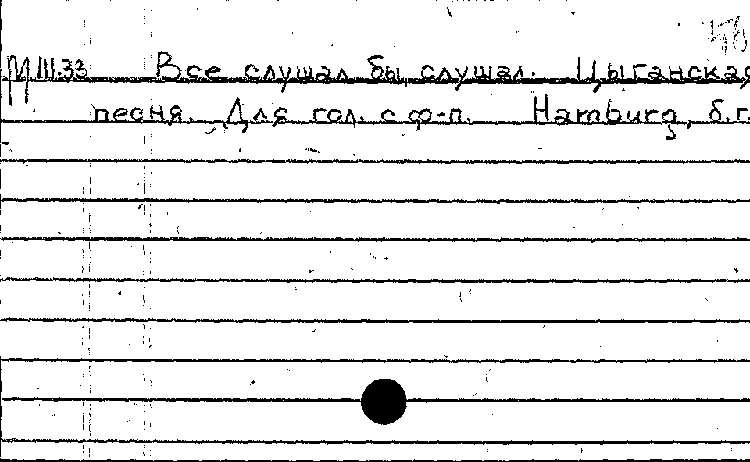 М III.33 Все слушал бы, слушал. Цыганская
песня. Для гол. с ф-п. Hamburg, б.г.